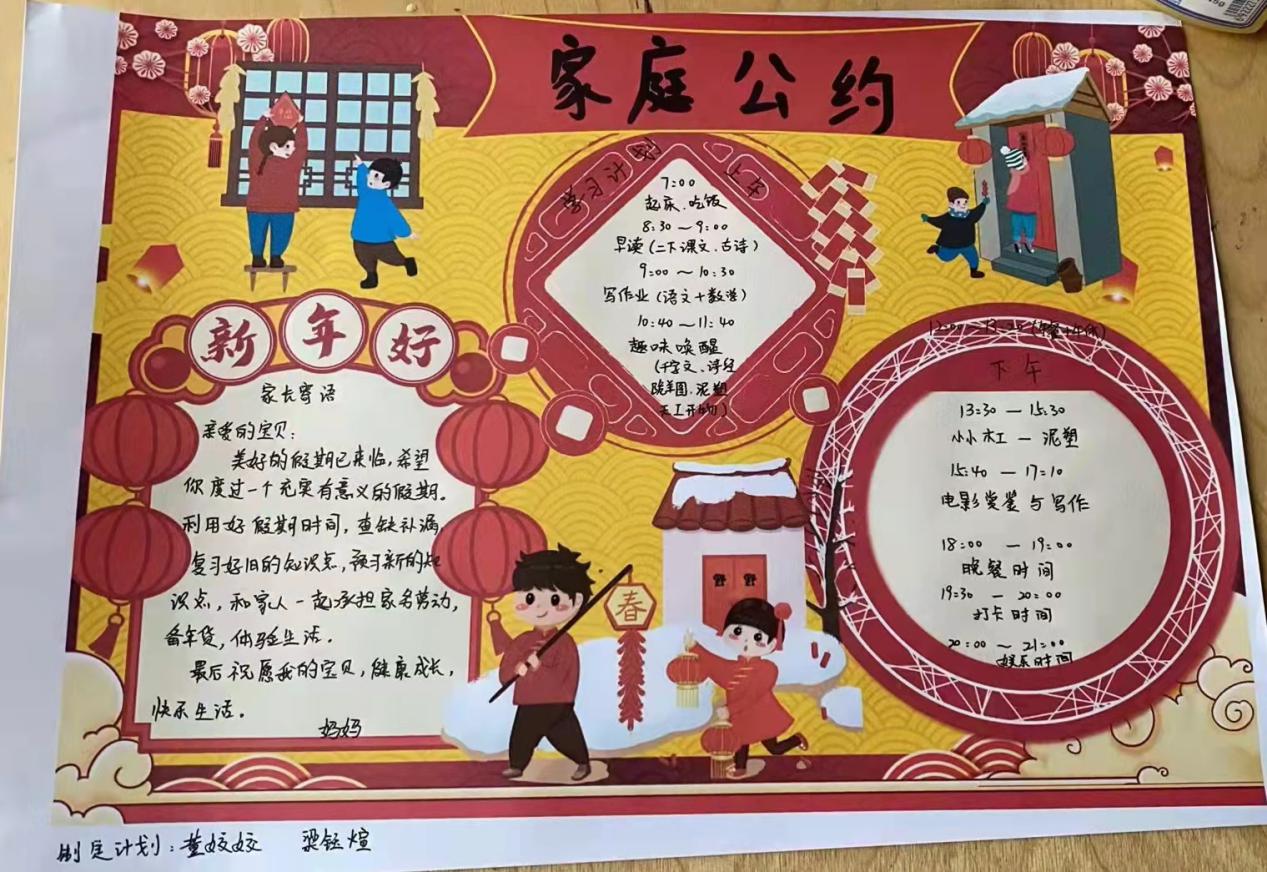 家庭公约
学习计划 上午
7:00
起床、吃饭
8:30～9:00
早读(二下课文、古诗)
9:00～10:30
写作业(语文+数学)
10:40～11:40
趣味唤醒
(千字文、诗经
泥塑
天工开物)
新年好
家长寄语
亲爱的宝贝:
美好的假期已来临,希望
你度过一个充实有意义的假期。
利用好假期时间,查缺补漏
复习好旧的知识点,预习新的知
识点,和家人一起承担家务劳动,
备年货,体验生活。
最后祝愿我的宝贝,健康成长,
快乐生活。
妈妈
春
下午
13:30—15:30
小小木工—泥塑
15:40—17:10
电影赏鉴与写作
18:00—19:00
晚餐时间
19:30—20:00
打卡时间
20:00～21:00
娱乐时间
制定计划:董姣姣 梁钰煊